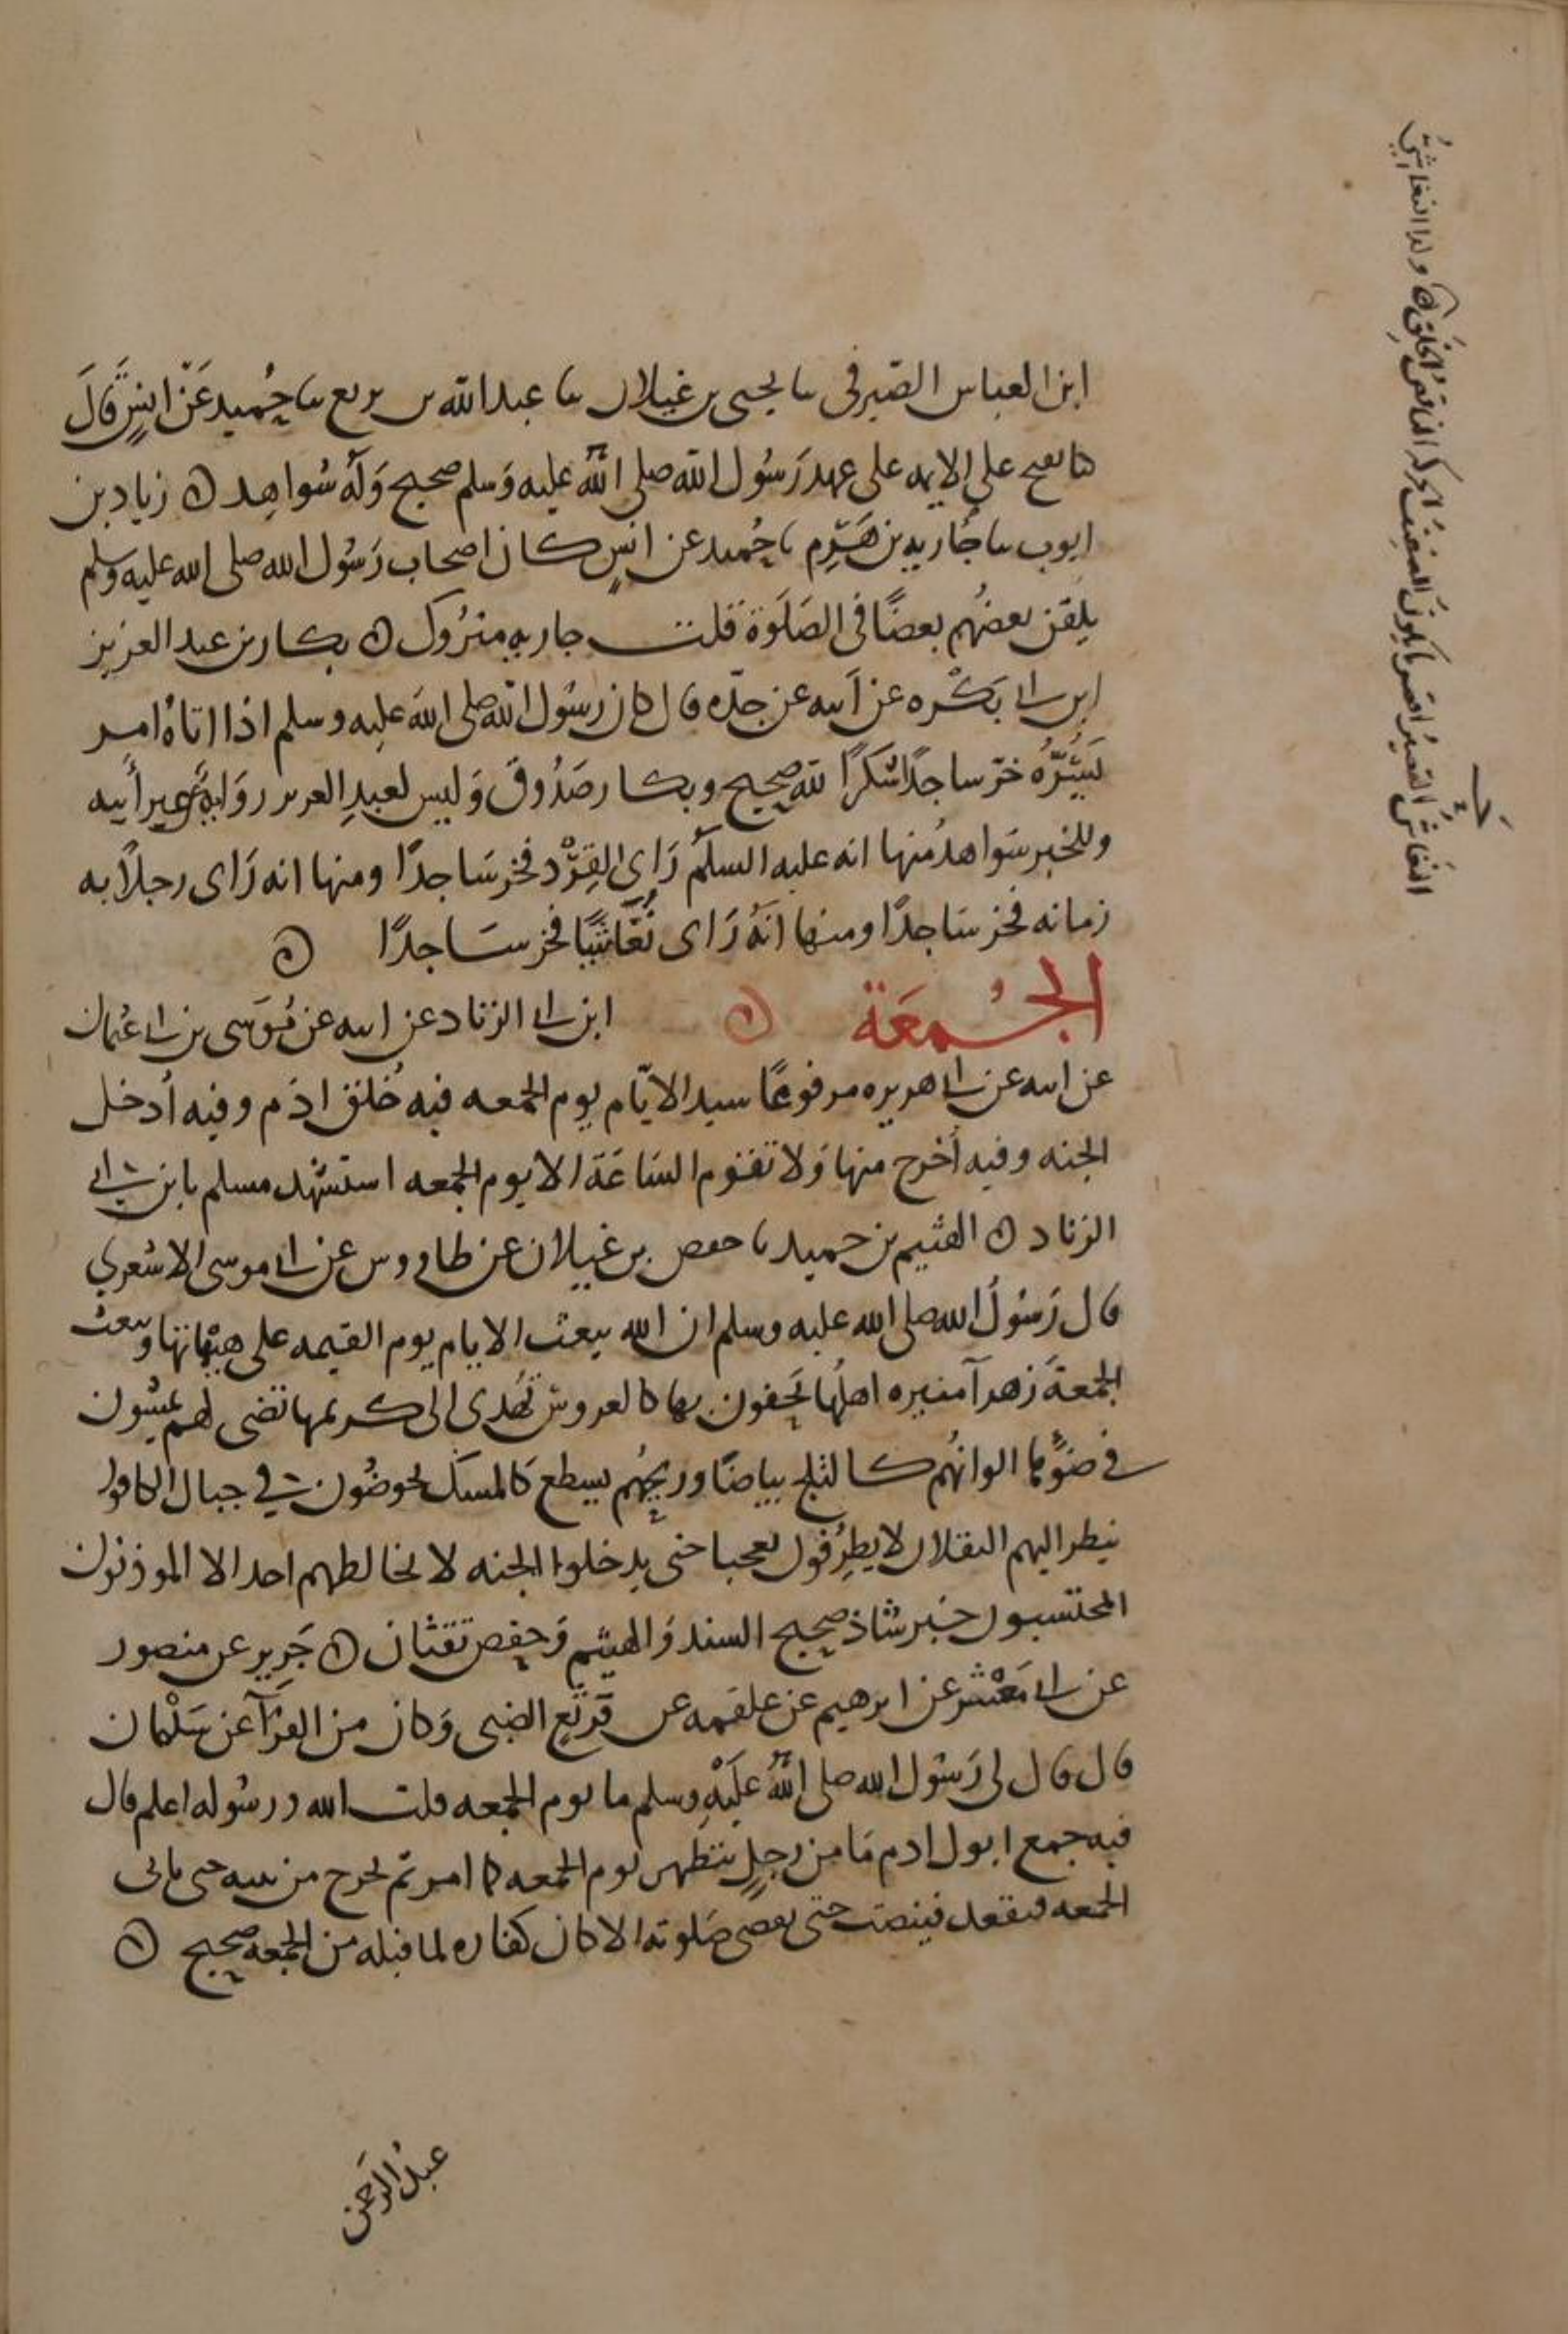 ابن العباس الصيرفي ثنا يحيى بن غيلان ثنا عبد الله بن بزيع ثنا حُميد عَنْ انسٍ قَالَ
كنا نفتح على الايمه على عهد رَسُول الله صلى اللهُ عليه وَسلم صحيح وَلَهُ شواهِد ه زياد بن
ايوب ثنا جَاريه بن هَرِم ثنا حُميد عن انسٍ كان اصحاب رَسُول الله صلى الله عليه وسلم
يلقن بعضُهم بعضًا في الصَلَوة قلت جاريه متروك ه بكار بن عبد العزيز
ابن ابي بَكْره عن اَبيه عن جدّه قال كان رسُول الله صلى اللهَ عليه وسلم اذا اتاهُ امر
يَسُرُّهُ خرّ ساجدًا شكرًا لله صحيح وبكار صَدُوق وَليس لعبدِ العزيز روَايةٌ عن غير أبيه
وللخبر شواهدُ منها انه عليه السلم رَاى القِرْد فخر سَاجدًا ومنها انه رَاى رجلًا به
زمانه فخر سَاجدًا ومنها انَّهُ رَاى نُغَاشيًّا فخر سَاجدًا ه
الجُمعَة ه ابن ابي الزناد عن ابيه عن مُوسَى بن ابي عُثمان
عن ابيه عن ابي هريره مرفوعًا سيد الايّام يوم الجمعه فيه خُلق ادَم وفيه اُدخل
الجنه وفيه اُخرج منها وَلا تقوم السَاعَة الا يوم الجمعه استشهد مسلم بابن ابي
الزناد ه الهثيم بن حميد ثنا حفص بن غيلان عن طاووس عن ابي موسى الاشعري
قال رَسُولُ الله صلى الله عليه وسلم ان الله يبعث الايام يوم القيمه على هيئاتها ويبعث
الجمعةَ زهرآ منيره اهلُها يَحفون بها كالعروس تُهدى الى كريمها تضى لهم يمشون
في ضوّها الوانُهم كالثلج بياضًا وريحُهم يسطع كَالمسك يخوضُون في جبال الكافور
ينظر اليهم الثقلان لا يطرِفون تعجبا حتى يدخلوا الجنه لا يخالطهم احد الا الموذنون
المحتسبون خبر شاذ صحيح السند وَالهيثم وَحفص ثقتان ه جَرير عن منصور
عن ابي مَعْشر عن ابرهيم عن علقمه عن قَرثَعِ الضبى وَكان من القرَّآ عن سَلْمان
قال قال لى رَسُول الله صلى اللهُ عَلَيْهِ وسلم ما يوم الجمعه قلت الله ورسُوله اعلم قال
فيه جمع ابوك ادم مَا من رجلٍ يتطهر يوم الجمعه كما امر ثم يخرج من بيته حتى ياتى
الجمعه فيقعد فينصت حتى يقضى صَلوته الا كان كفاره لما قبله من الجمعه صحيح ه
عبدُ الرَحمن
النغاشُ القصيرُ اقصر ما يكونُ الضعيفُ الحركة الناقصُ الخَلقِ ه وكذا النغاشيُّ